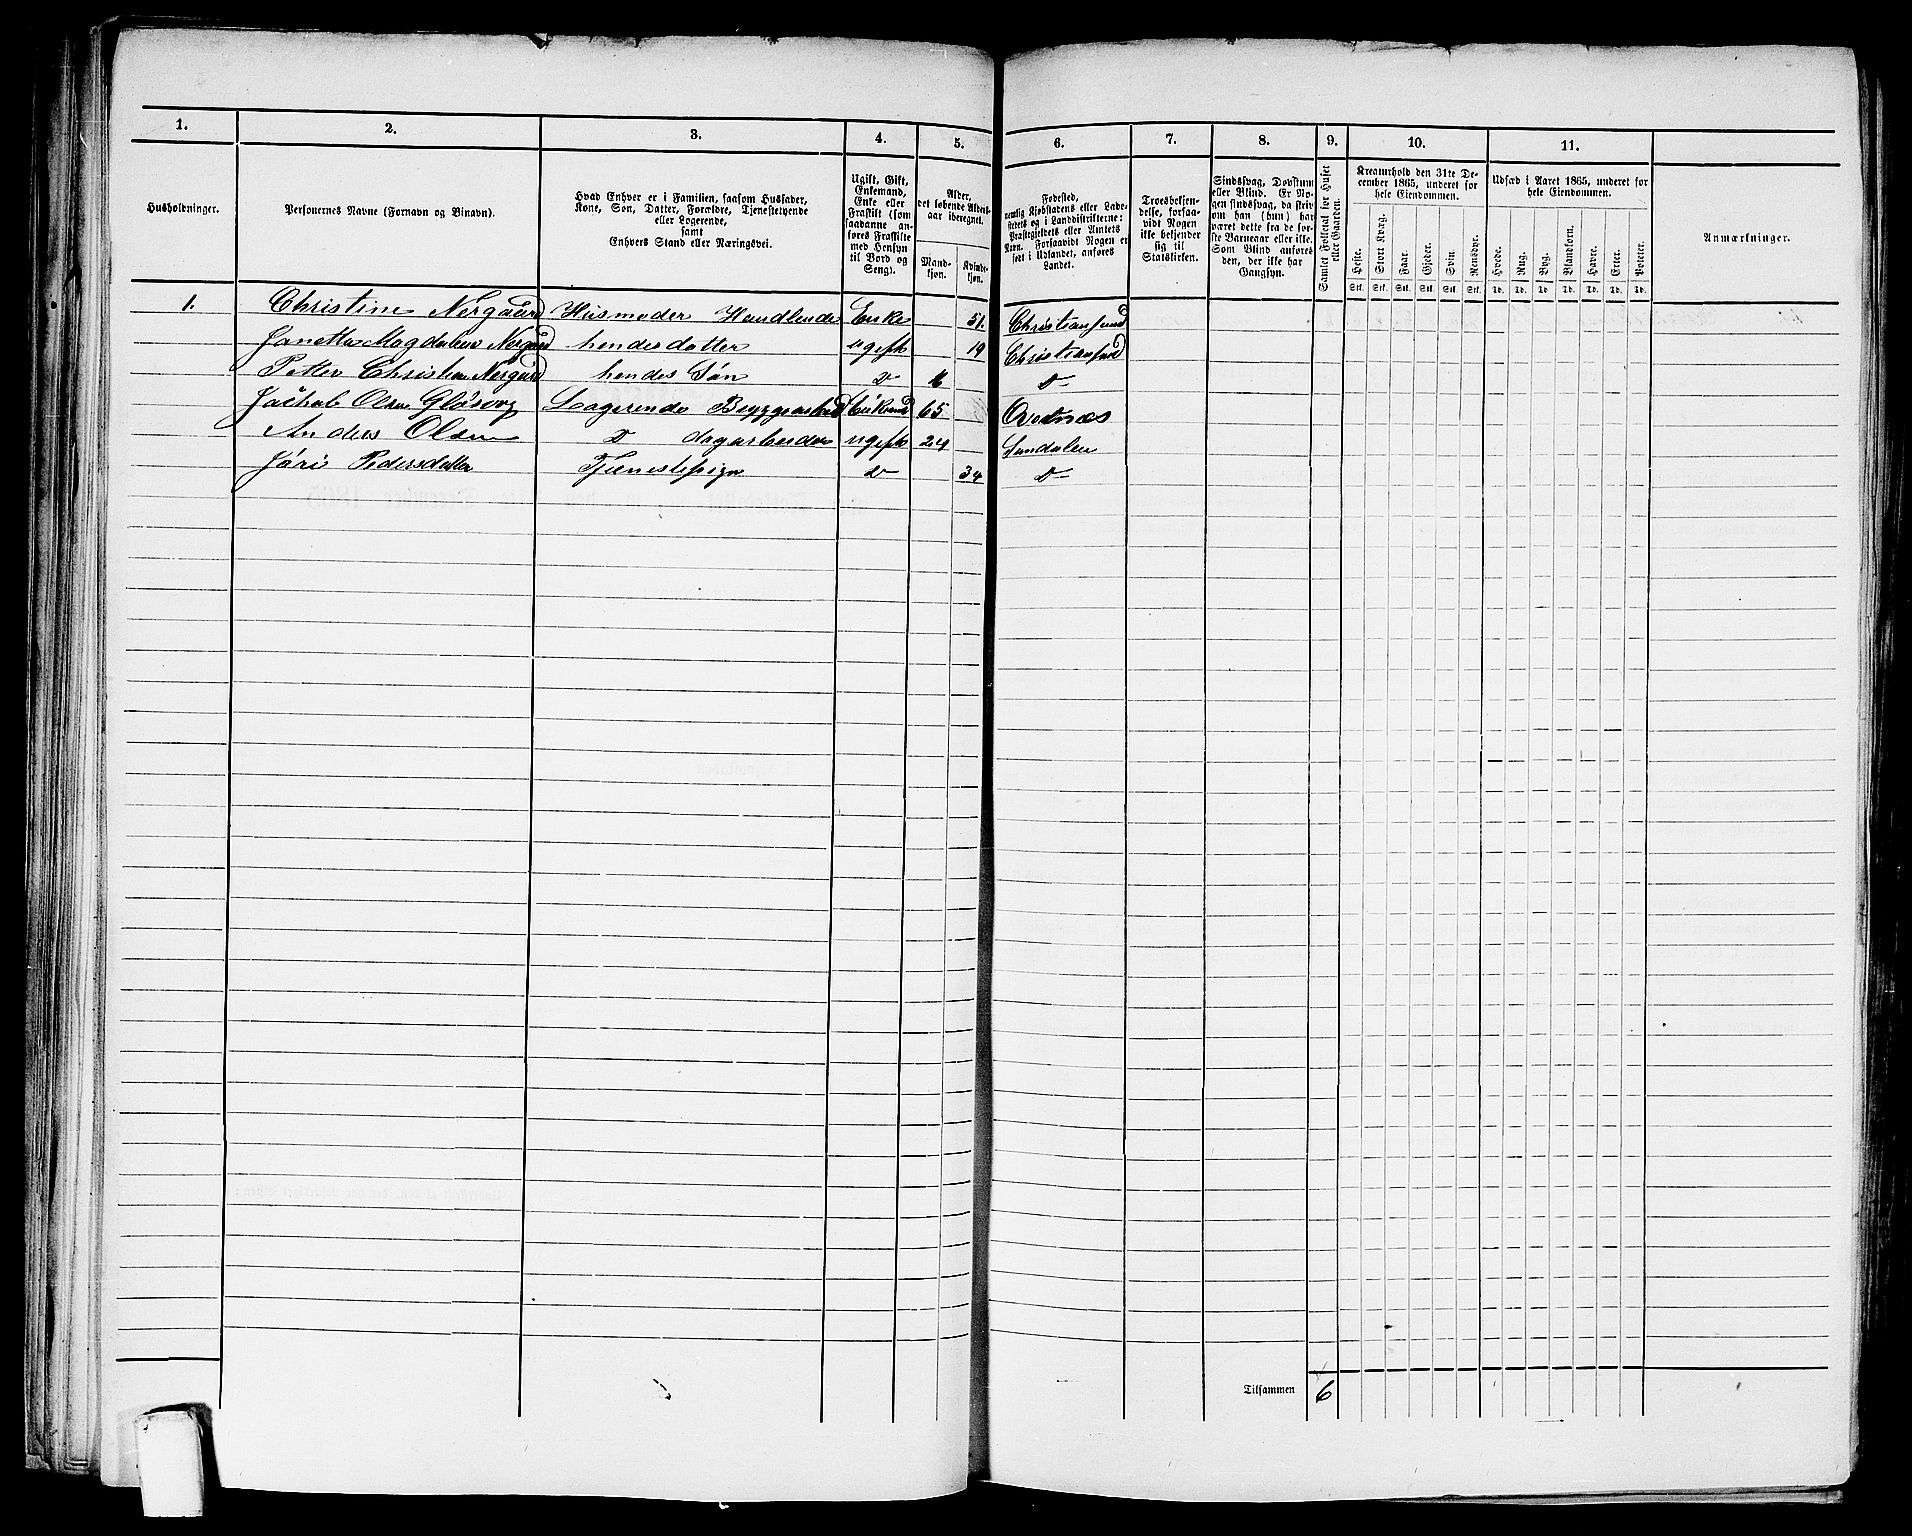 1. 2. 3. 4. 5. 6. 7. 8. 9. 10. 11.
Husholdninger.
Personernes Navne (Fornavn og Binavn).
Hvad Enhver er i Familien, saasom Husfader,
Kone, Søn, Datter, Forældre, Tjenestetyende
eller Logerende,
samt
Enhvers Stand eller Næringsvei.
Ugift, Gift,
Enkemand,
Enke eller
Fraskilt (som
saadanne an-
føres Fraskilte
med Hensyn
til Bord og
Seng).
Alder,
det løbende Alders-
aar iberegnet.
Mand-
kjøn.
Kvinde-
kjøn.
Fødested,
nemlig Kjøbstadens eller Lade-
stedets og i Landdistrikterne:
Præstegjeldets eller Amtets
Navn. Forsaavidt Nogen er
født i Udlandet, anføres
Landet.
Troesbekjen-
delse, forsaa-
vidt Nogen
ikke bekjender
sig til
Statskirken.
Sindssvag, Døvstum
eller Blind. Er No-
gen sindssvag, da skriv
om han (hun) har
været dette fra de før-
ste Barneaar eller ikke.
Som Blind anføres
den, der ikke har
Gangsyn.
Samlet Folketal for Huset
eller Gaarden.
Kreaturhold den 31te De-
cember 1865, underet for
hele Eiendommen.
Heste. Stort Kvæg. Faar. Gjeder. Svin. Rensdyr.
Stk. Stk. Stk. Stk. Stk. Stk.
Udsæd i Aaret 1865, underet for
hele Eiendommen.
Hvede. Rug. Byg. Blandkorn. Havre. Erter. Poteter.
Td. Td. Td. Td. Td. Td. Td.
Anmærkninger.
1. Christine Nergaard Husmoder Handlende Enke 51. Christiansund
Janetta Magdalena Nergaard hendes datter ugift 19 Christiansund
Petter Christian Nergaard hendes Søn D D
Jachob Olsen Logerende Enkemd 65
Anders Olsen D dagarbeider ugift 24 Sundalen
Jóri Pedersdatter Tjenestepige D 34 D
Tilsammen 6